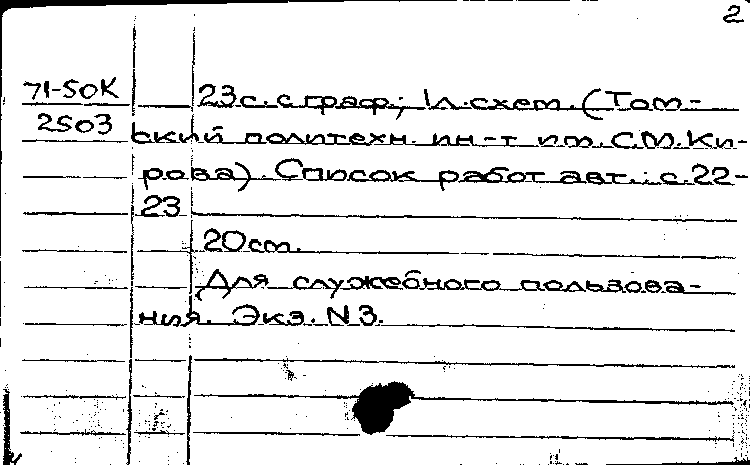 2
71-50К
2503
23с. с граф.; 1л. схем. (Том-
ский политехн. ин-т им. С.М. Ки-
рова). Список работ авт.: с. 22-
23
20 см.
Для служебного пользова-
ния. Экз. N 3.